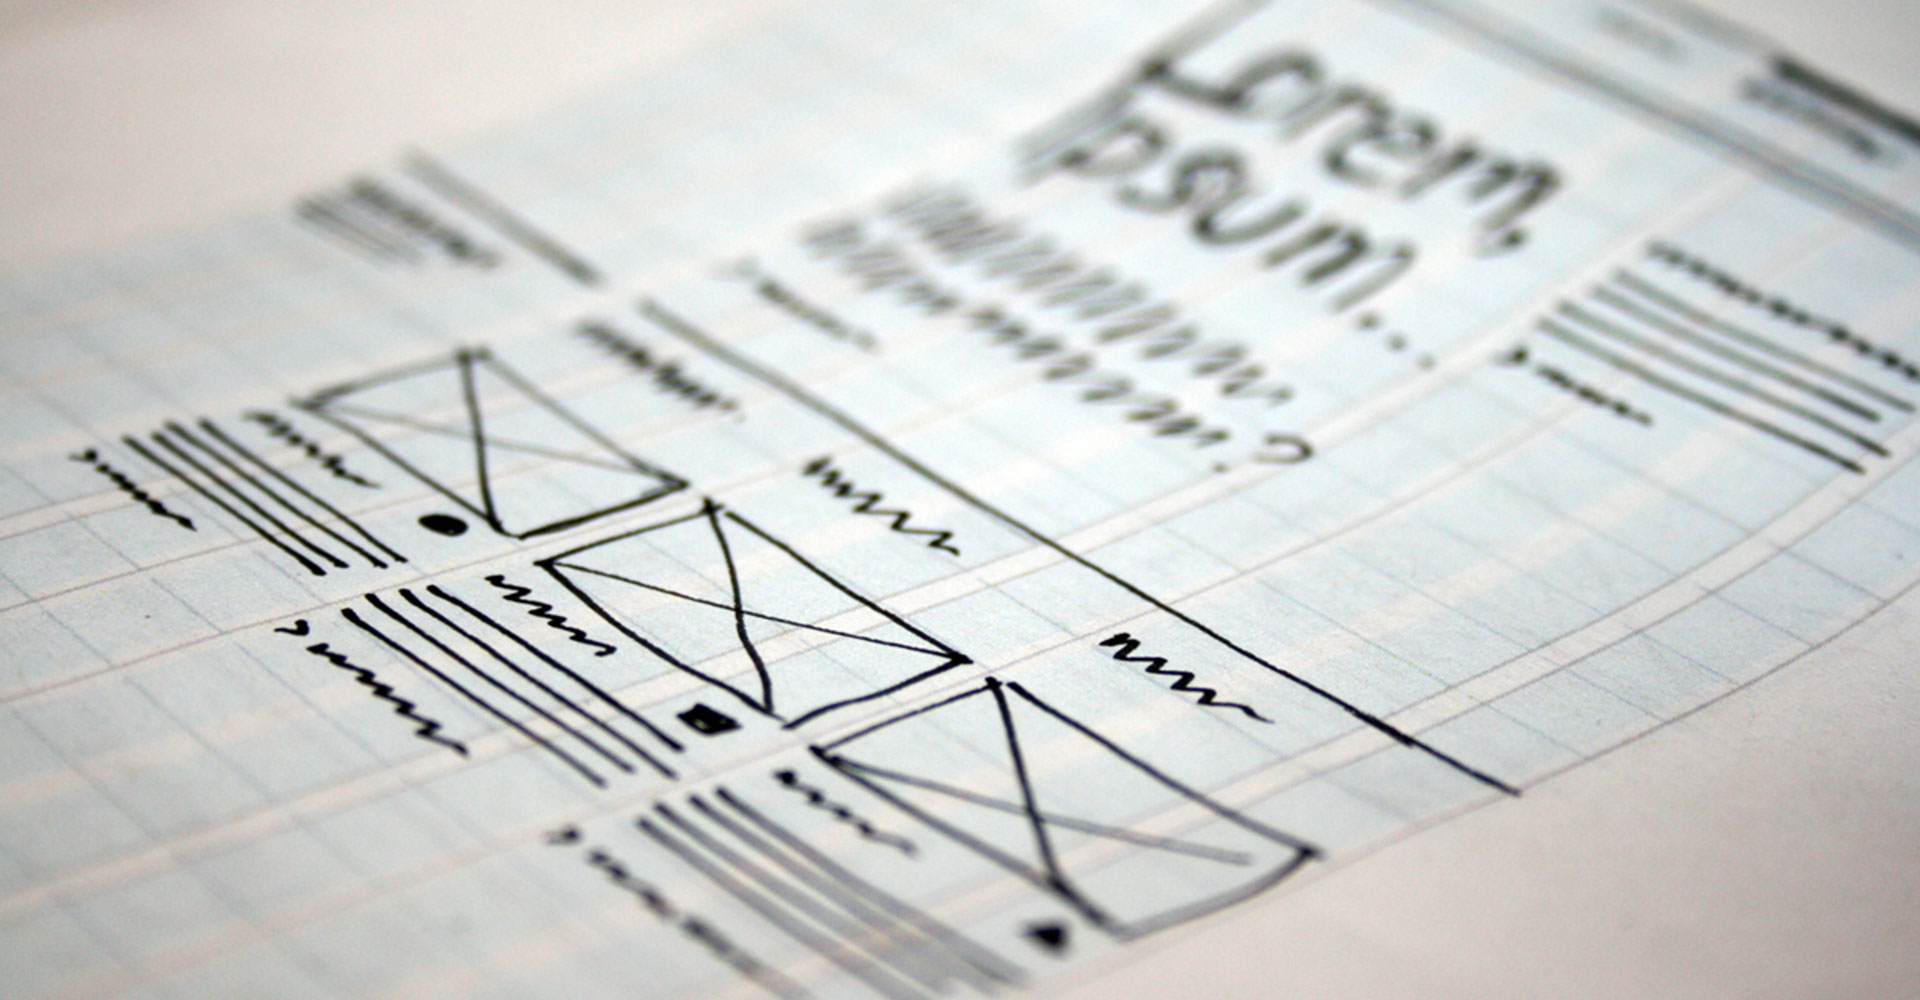 Lorem,
ipsum...